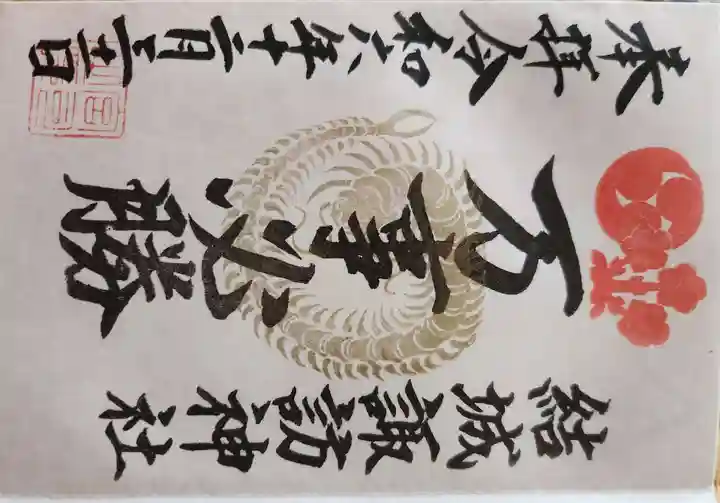 結城諏訪神社
万事必勝
奉拝令和六年十二月二十一日